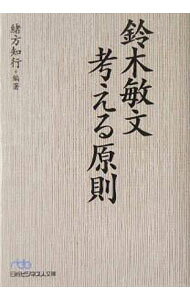 鈴木敏文
考える原則
緒方知行・編著
日経ビジネス人文庫